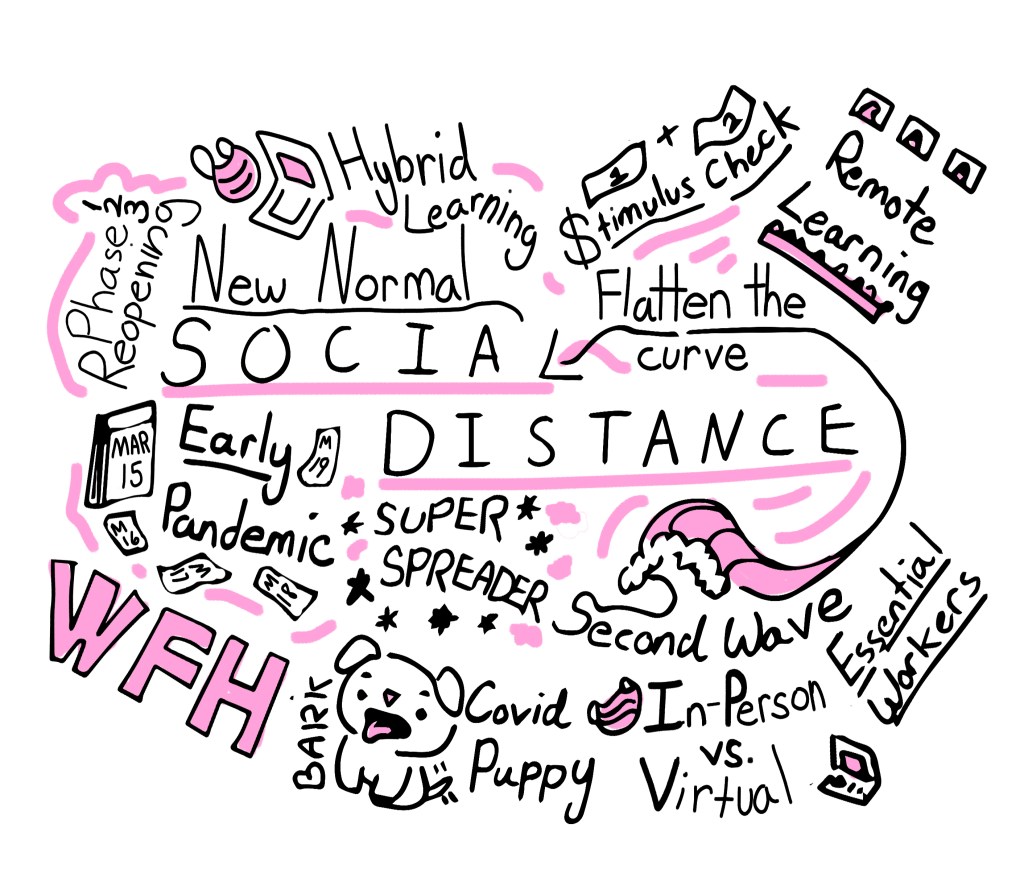 Hybrid
Learning
1 + 2
$timulus Check
Remote
Learning
Phase 1 2 3
Reopening
New Normal
Flatten the
curve
SOCIAL
DISTANCE
MAR
15
Early
Pandemic
M
19
M
16
M
17
M
18
SUPER
SPREADER
Second Wave
Essential
Workers
WFH
BARK
Covid
Puppy
In-Person
vs.
Virtual